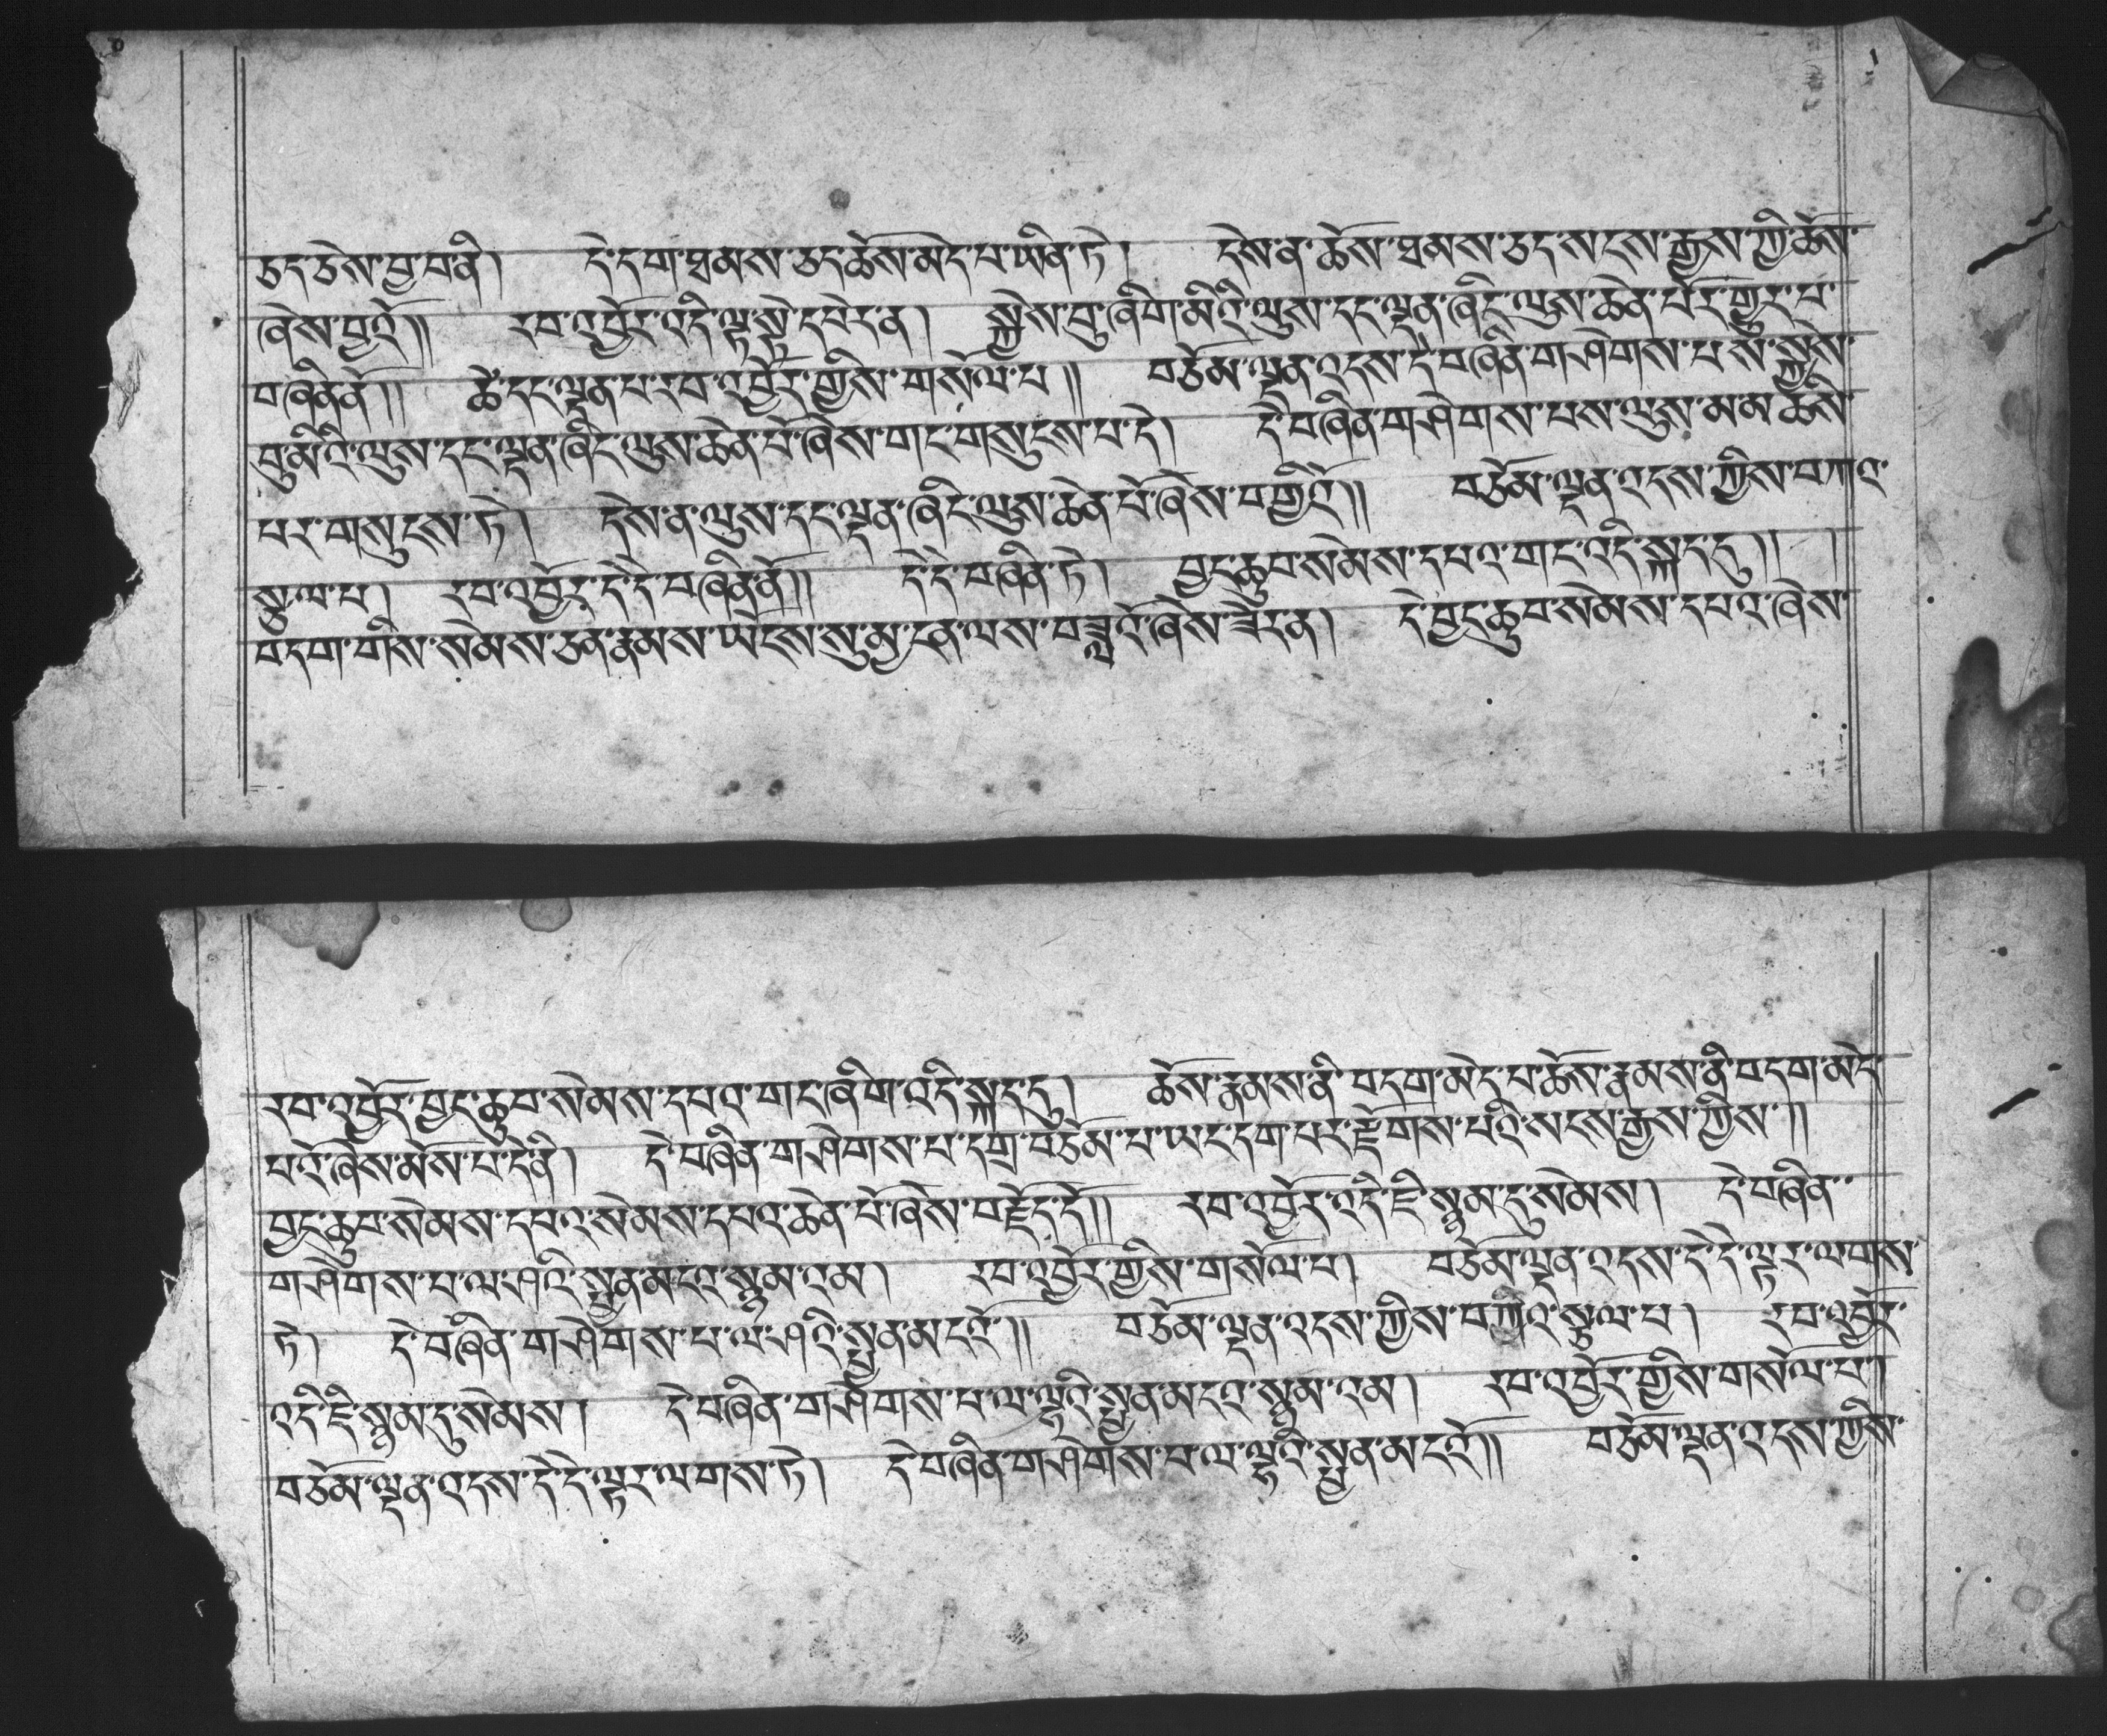 ཅད་ཅེས་བྱ་བ་ནི། དེ་དག་ཐམས་ཅད་ཆོས་མེད་པ་ཡིན་ཏེ། དེས་ན་ཆོས་ཐམས་ཅད་སངས་རྒྱས་ཀྱི་ཆོས་
ཞེས་བྱའོ།། རབ་འབྱོར་འདི་ལྟ་སྟེ་དཔེར་ན། སྐྱེས་བུ་ཞིག་མིའི་ལུས་དང་ལྡན་ཞིང་ལུས་ཆེན་པོར་གྱུར་པ་
བཞིན་ནོ།། ཚེ་དང་ལྡན་པ་རབ་འབྱོར་གྱིས་གསོལ་པ།། བཅོམ་ལྡན་འདས་དེ་བཞིན་གཤེགས་པས་སྐྱེས་
བུ་མིའི་ལུས་དང་ལྡན་ཞིང་ལུས་ཆེན་པོ་ཞེས་གང་གསུངས་པ་དེ། དེ་བཞིན་གཤེགས་པས་ལུས་མ་མཆིས་
པར་གསུངས་ཏེ། དེས་ན་ལུས་དང་ལྡན་ཞིང་ལུས་ཆེན་པོ་ཞེས་བགྱིའོ།། བཅོམ་ལྡན་འདས་ཀྱིས་བཀའ་
སྩལ་པ། རབ་འབྱོར་དེ་དེ་བཞིན་ནོ།། དེ་དེ་བཞིན་ཏེ། བྱང་ཆུབ་སེམས་དཔའ་གང་འདི་སྐད་དུ།།
བདག་གིས་སེམས་ཅན་རྣམས་ཡོངས་སུ་མྱ་ངན་ལས་བཟླའོ་ཞེས་ཟེར་ན། དེ་བྱང་ཆུབ་སེམས་དཔའ་ཞེས་
རབ་འབྱོར་བྱང་ཆུབ་སེམས་དཔའ་གང་ཞིག་འདི་སྐད་དུ། ཆོས་རྣམས་ནི་བདག་མེད་པ་ཆོས་རྣམས་ནི་བདག་མེད་
པའོ་ཞེས་མོས་པ་དེ་ནི། དེ་བཞིན་གཤེགས་པ་དགྲ་བཅོམ་པ་ཡང་དག་པར་རྫོགས་པའི་སངས་རྒྱས་ཀྱིས།།
བྱང་ཆུབ་སེམས་དཔའ་སེམས་དཔའ་ཆེན་པོ་ཞེས་བརྗོད་དོ།། རབ་འབྱོར་འདི་ཇི་སྙམ་དུ་སེམས། དེ་བཞིན་
གཤེགས་པ་ལ་ཤའི་སྤྱན་མངའ་སྙམ་འམ། རབ་འབྱོར་གྱིས་གསོལ་པ། བཅོམ་ལྡན་འདས་དེ་དེ་ལྟར་ལགས་
ཏེ། དེ་བཞིན་གཤེགས་པ་ལ་ཤའི་སྤྱན་མངའོ།། བཅོམ་ལྡན་འདས་ཀྱིས་བཀའ་སྩལ་པ། རབ་འབྱོར་
འདི་ཇི་སྙམ་དུ་སེམས། དེ་བཞིན་གཤེགས་པ་ལ་ལྷའི་སྤྱན་མངའ་སྙམ་འམ། རབ་འབྱོར་གྱིས་གསོལ་པ།
བཅོམ་ལྡན་འདས་དེ་དེ་ལྟར་ལགས་ཏེ། དེ་བཞིན་གཤེགས་པ་ལ་ལྷའི་སྤྱན་མངའོ།། བཅོམ་ལྡན་འདས་ཀྱིས་